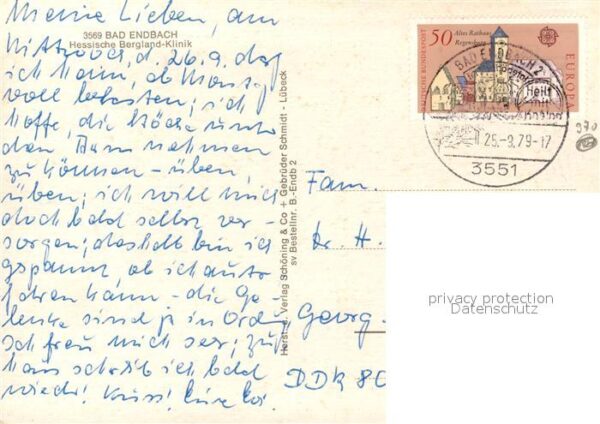 Meine Lieben, am
3569 BAD ENDBACH
Hessische Bergland-Klinik
Mittwoch, d. 26.9. darf
ich kann, ab
voll belasten; ich
hoffe, die Stöcke unter
den Arm nehmen
zu können - üben,
üben; ich will mich
doch bald selber ver-
sorgen; deshalb bin ich
gespannt, ob ich auto
fahren kann - die Ge-
lenke sind ja in Ordng,
ich freu mich sehr; zu
haus schreib ich bald
wieder! Kuss! Eure
Herst. u. Verlag Schöning & Co + Gebrüder Schmidt - Lübeck
sv Bestellnr. B.-Endb 2
50
Altes Rathaus
Regensburg
DEUTSCHE BUNDESPOST
EUROPA
BAD ENDBACH 2
Heilt
mit
25.-9.79-17
3551
970
Fam.
Dr. H.
Georg.
DDR 80
privacy protection
Datenschutz